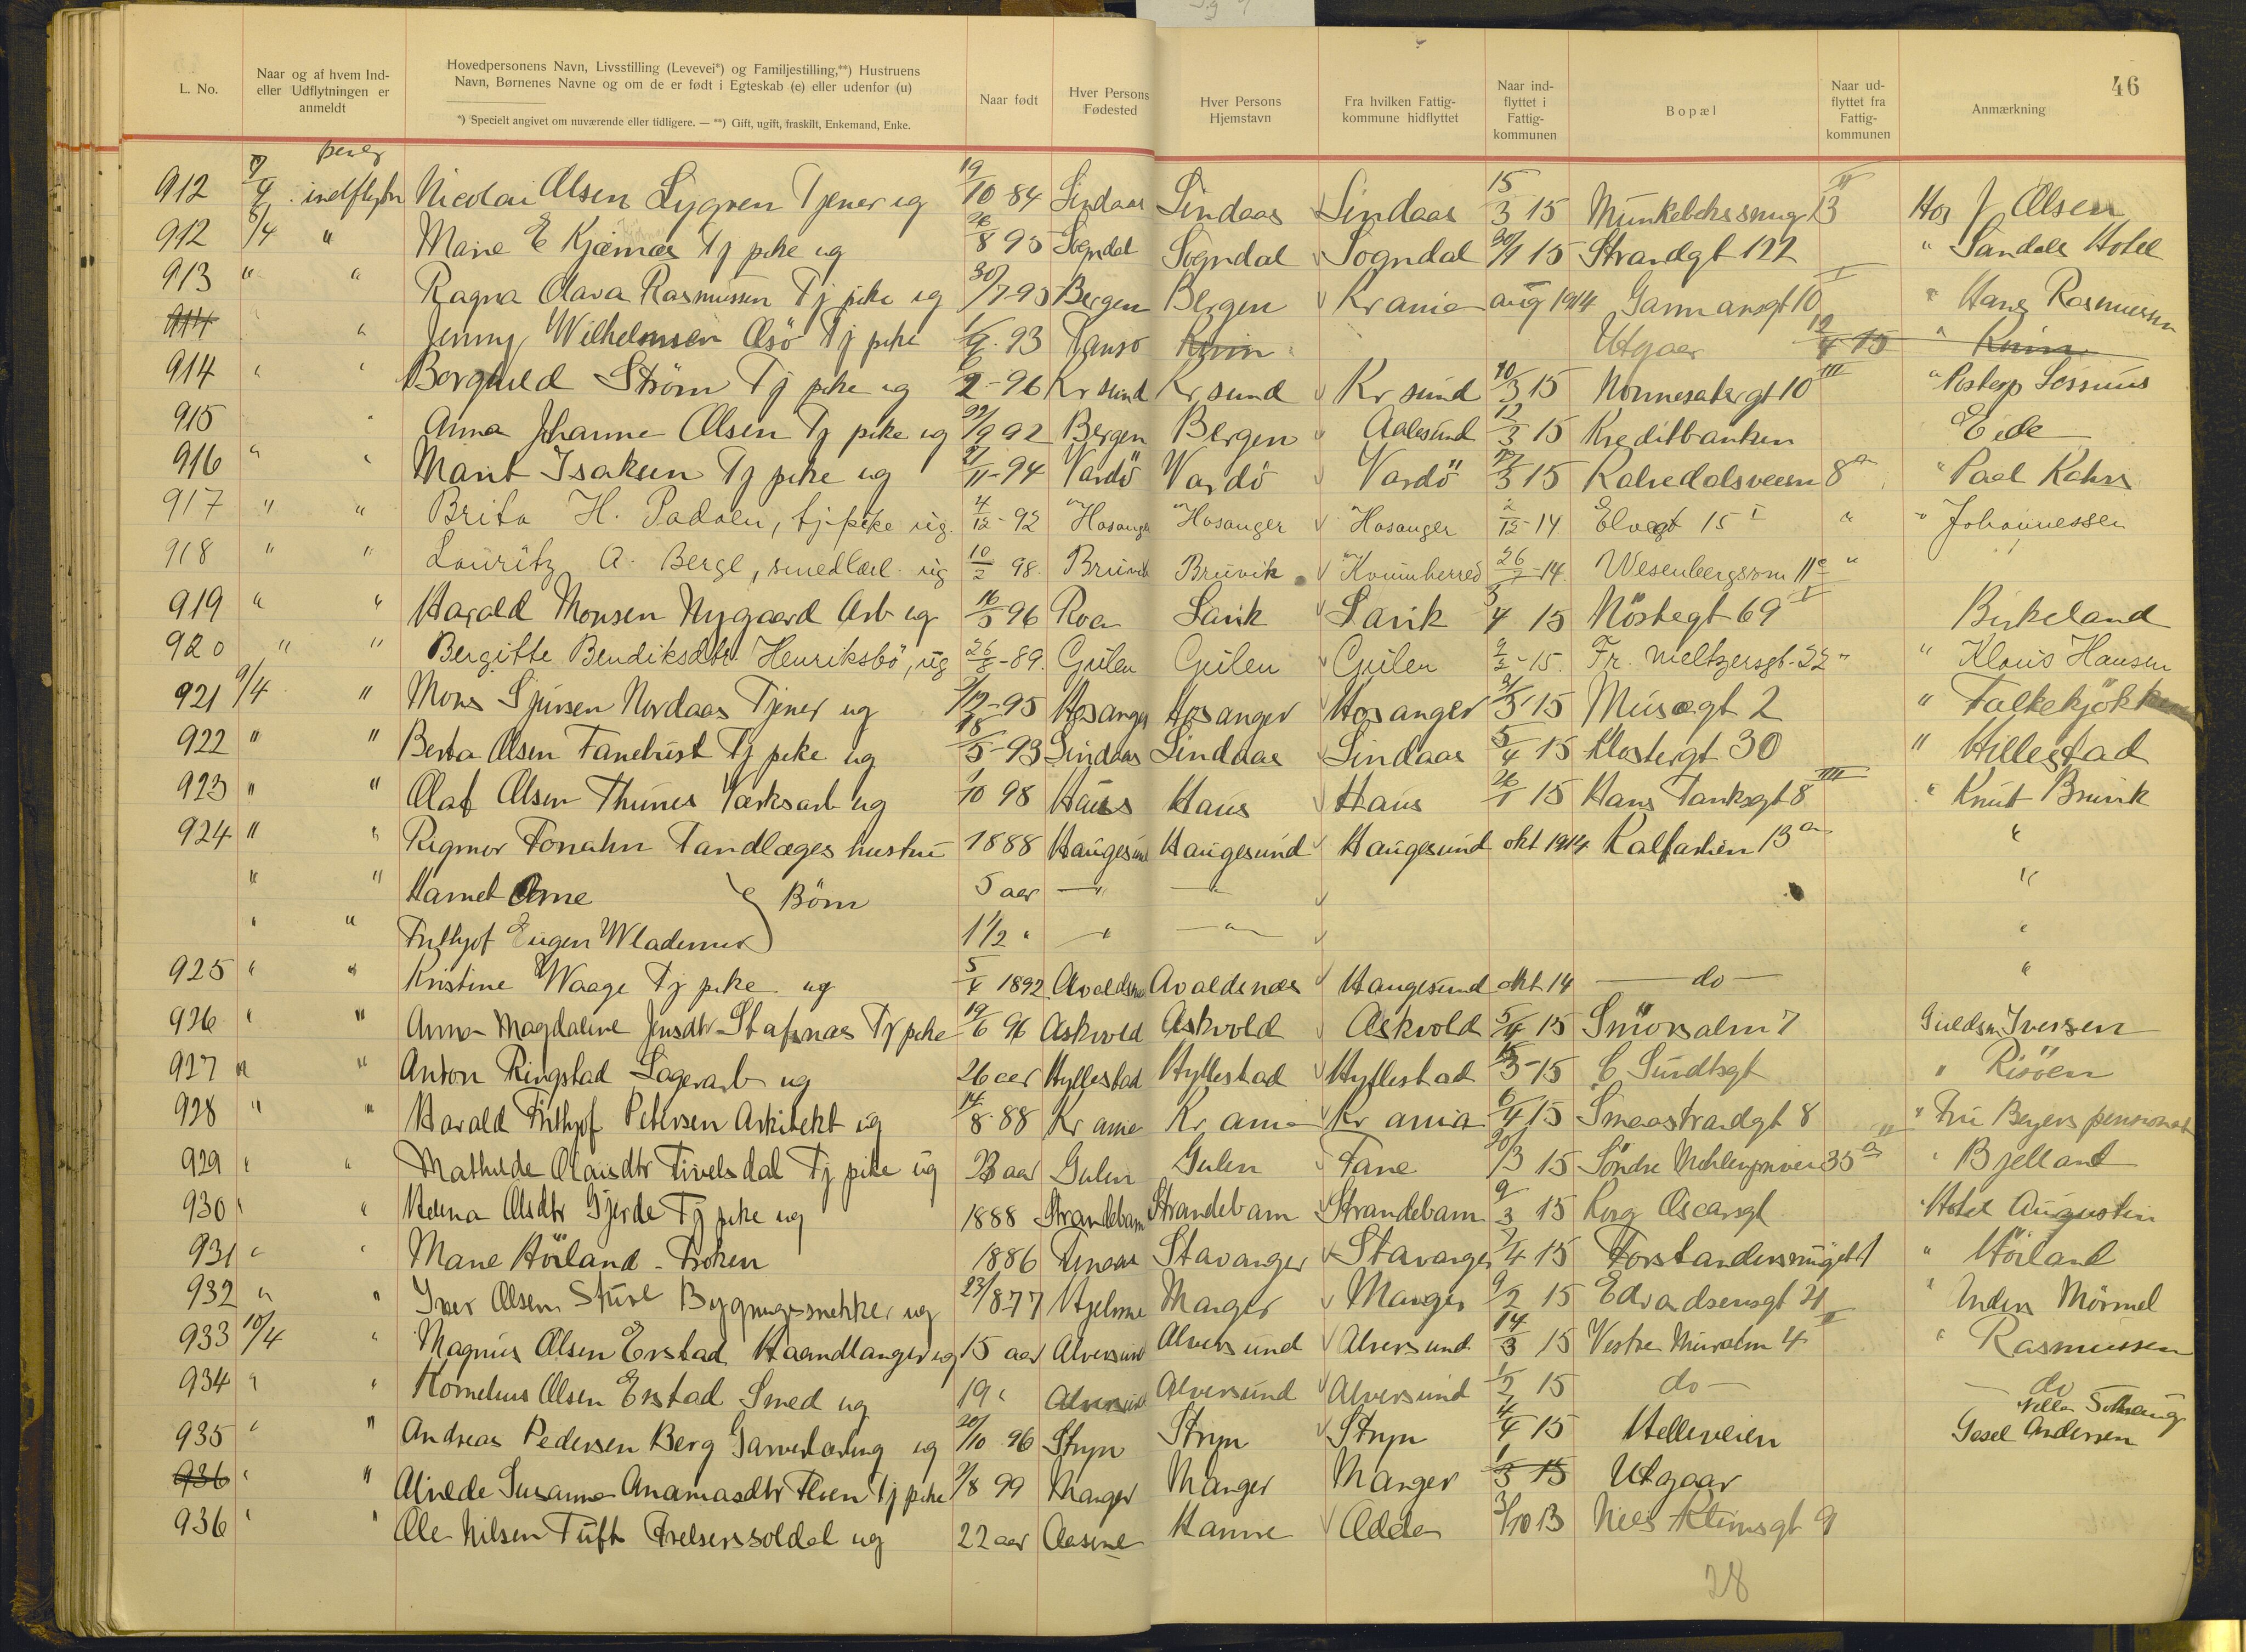 46
L. No. | Naar og af hvem Ind- eller Udflytningen er anmeldt | Hovedpersonens Navn, Livsstilling (Levevei*) og Familjestilling,**) Hustruens Navn, Børnenes Navne og om de er født i Egteskab (e) eller udenfor (u) | Naar født | Hver Persons Fødested | Hver Persons Hjemstavn | Fra hvilken Fattigkommune hidflyttet | Naar indflyttet i Fattigkommunen | Bopæl | Naar udflyttet fra Fattigkommunen | Anmærkning
*) Specielt angivet om nuværende eller tidligere. — **) Gift, ugift, fraskilt, Enkemand, Enke.
912 7/4 indflyttn Nicolai Olsen Lygren Tjener ug 19/10 84 Lindaas Lindaas Lindaas 15/3 15 Munkebeksmug 13 III Hos J Olsen
912 8/4 " Marie E Kjærnæs Tj pike ug 26/8 95 Sogndal Sogndal Sogndal 20/1 15 Strandgt 122 " Sandals Hotel
913 " " Ragna Olava Rasmussen Tj pike ug 30/7 95 Bergen Bergen Kr ania aug 1914 Garmansgt 10 I " Hans Rasmussen
914 " " Jenny Wilhelmsen Osö Tj pike 1/9 93 Kinn Utgaar 12/4 15 " Kinn
914 " " Borghild Strøm Tj pike ug 6/2 - 96 Kr sund Kr sund Kr sund 10/3 15 Nonnesætergt 10 III "
915 " Anna Johanne Olsen Tj pike ug 22/9 92 Bergen Bergen Aalesund 12/3 15 Kreditbanken Eide
916 " " Marit Isaksen Tj pike ug 21/11 - 94 Vardö Vardö Vardö 12/3 15 Kalvedalsveien 8 a " Paal Kahrs
917 " " Brita H. Padøen, tj-pike ug. 4/12 - 92 Hosanger Hosanger Hosanger 2/12 - 14 Elvegt 15 I " " Johannessen
918 " " Lauritz A. Berge, smedlærl. ug 10/2 98. Bruvik Bruvik Kvinnherred 26/7 - 14. Wesenbergsvm 11 c "
919 " " Harald Monsen Nygaard Arb ug 16/5 96 Lavik Lavik 3/4 15 Nöstegt 69 I Birkeland
920 " " Bergitte Bendiksdtr. Henriksbö, ug 26/8 - 89. Gulen Gulen Gulen 2/2 - 15. Fr. Meltzersgt. 22 " " Klaus Hansen
921 9/4 " Mons Sjursen Nordaas Tjener ug 7/12 - 95 Hosanger Hosanger Hosanger 21/3 15 Musægt 2 " Folkekjökken
922 " " Berta Olsen Tanebust Tj pike ug 18/5 - 93 Lindaas Lindaas Lindaas 5/4 15 Klostergt 30 " Hillestad
923 " " Olaf Olsen Thunes Værksarb ug 7/10 98 Haus Haus Haus 26/1 15 Hans Tanksgt 8 IIII " Knut Bruvik
924 " " Rigmor Fonahn Tandlæges hustru 1888 Haugesund Haugesund Haugesund okt 1914 Kalfarlien 13 a "
" " Harriet Arne } Börn 5 aar — " — " — "
" " Frithjof Eugen Wladimir 1 1/2 " — " — " — "
925 " " Kristine Waage Tj pike ug 5/4 1892 Avaldsnæs Avaldsnæs Haugesund okt 14 — do — "
926 " " Anna Magdalene Jensdtr Stafsnæs Tj pike 19/6 96 Askvold Askvold Askvold 5/4 15 Smörsalm 7 Guldsm Iversen
927 " " Anton Ringstad Lagerarb ug 26 aar Hyllestad Hyllestad Hyllestad 15/3 - 15 C Sundtsgt " Risöen
928 " " Harald Frithjof Petersen Arkitekt ug 14/8 88 Kr ania Kr ania Kr ania 6/4 15 Smaastrandgt 8 " Fru Beyers pensionat
929 " " Mathilde Olausdtr Tivelsdal Tj pike ug 23 aar Gulen Gulen Fane 20/3 15 Söndre Mehlenprisvei 35 a " Bjelland
930 " " Helena Olsdtr Gjerde Tj pike ug 1888 Strandebarm Strandebarm Strandebarm 9/3 15 Kong Oscarsgt Hotel Augustin
931 " " Marie Höiland - Frøken 1886 Stavanger Stavanger 7/4 15 Forstandersmuget 1 " Höiland
932 " " Iver Olsen Sture Bygningssnekker ug 23/8 77 Hjelme Manger Manger 9/2 15 Edvardsensgt 21 " Anders Mörmel
933 10/4 " Magnus Olsen Erstad Haandlanger ug 15 aar Alversund Alversund Alversund 14/3 15 Vestre Muralm 4 II " Rasmussen
934 " " Kornelius Olsen Erstad Smed ug 19 " Alversund Alversund Alversund 1/2 15 do — — do
935 " " Andreas Pedersen Berg Garverlærling ug 20/10 96 Stryn Stryn Stryn 4/4 15 Helleveien Villa Solhaug Gesel Andersen
936 " " Alvilde Susanna Ananiasdtr Tj pike 7/8 99 Manger Manger Manger 1/3 15 Utgaar
936 " " Ole Nilsen Tuft Frelsessoldat ug 22 aar Hamre Odda 3/10 13 Niels Klimsgt 9
28